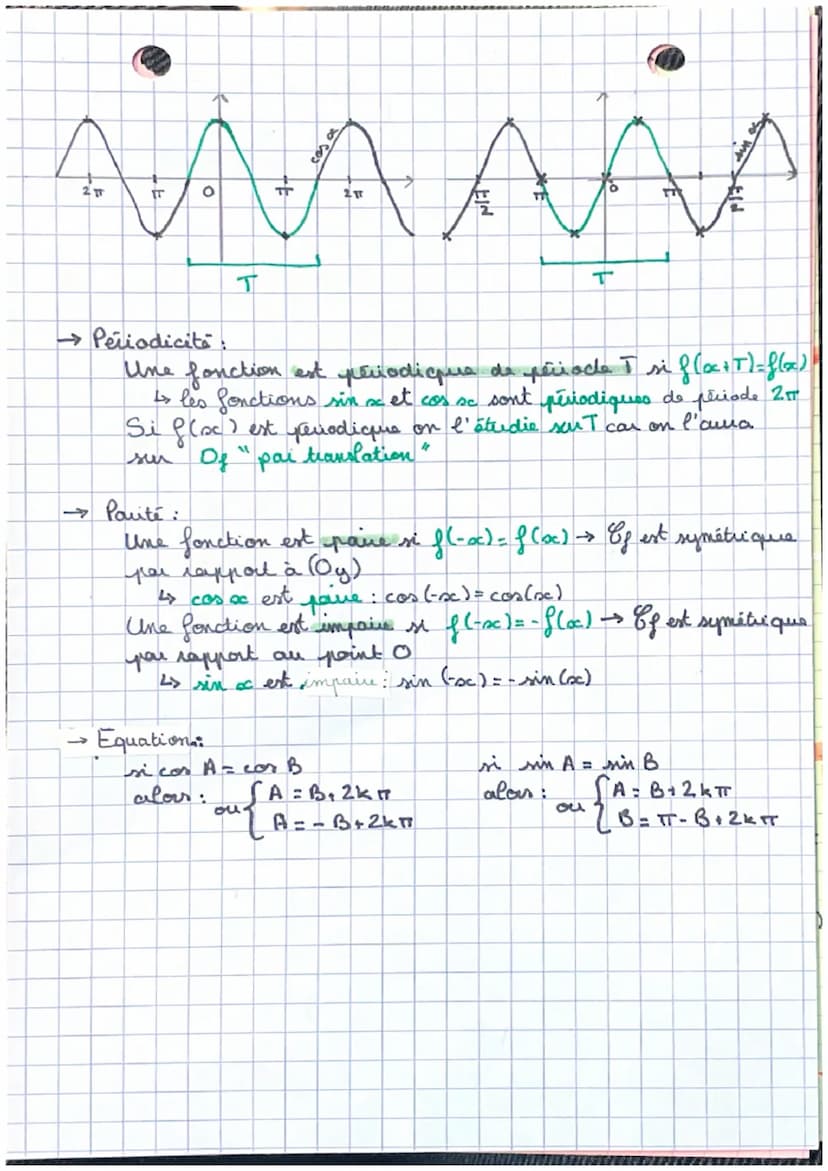 cos x
sin x
2π π O π 2π
π/2 π O π π/2
T
T
→ Périodicité :
Une fonction est périodique de période T si f(x+T)=f(x)
↳ les fonctions sin x et cos x sont périodiques de période 2π
Si f(x) est periodique on l'étudie sur T car on l'aura
sur Df "par translation"
→ Parité :
Une fonction est paire si f(-x) = f(x) → Cf est symétrique
par rapport à (Oy)
↳ cos x est paire : cos(-x) = cos(x)
Une fonction est impaire si f(-x) = - f(x) → Cf est symétrique
par rapport au point O
↳ sin x est impaire : sin (-x) = - sin (x)
→ Equation :
si cos A = cos B
alors : ou { A = B + 2kπ
A = - B + 2kπ
si sin A = sin B
alors : ou { A = B + 2kπ
B = π - B + 2kπ